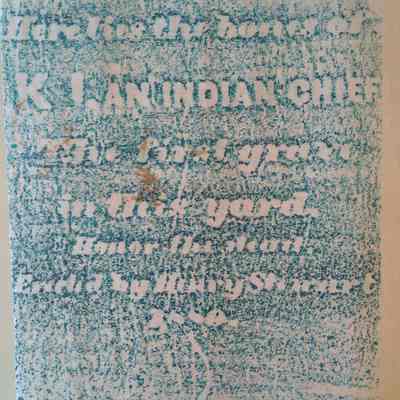 Here lies the bones of
K I. AN INDIAN CHIEF
The first grave
in this yard.
Honor the dead
by Henry Stewart